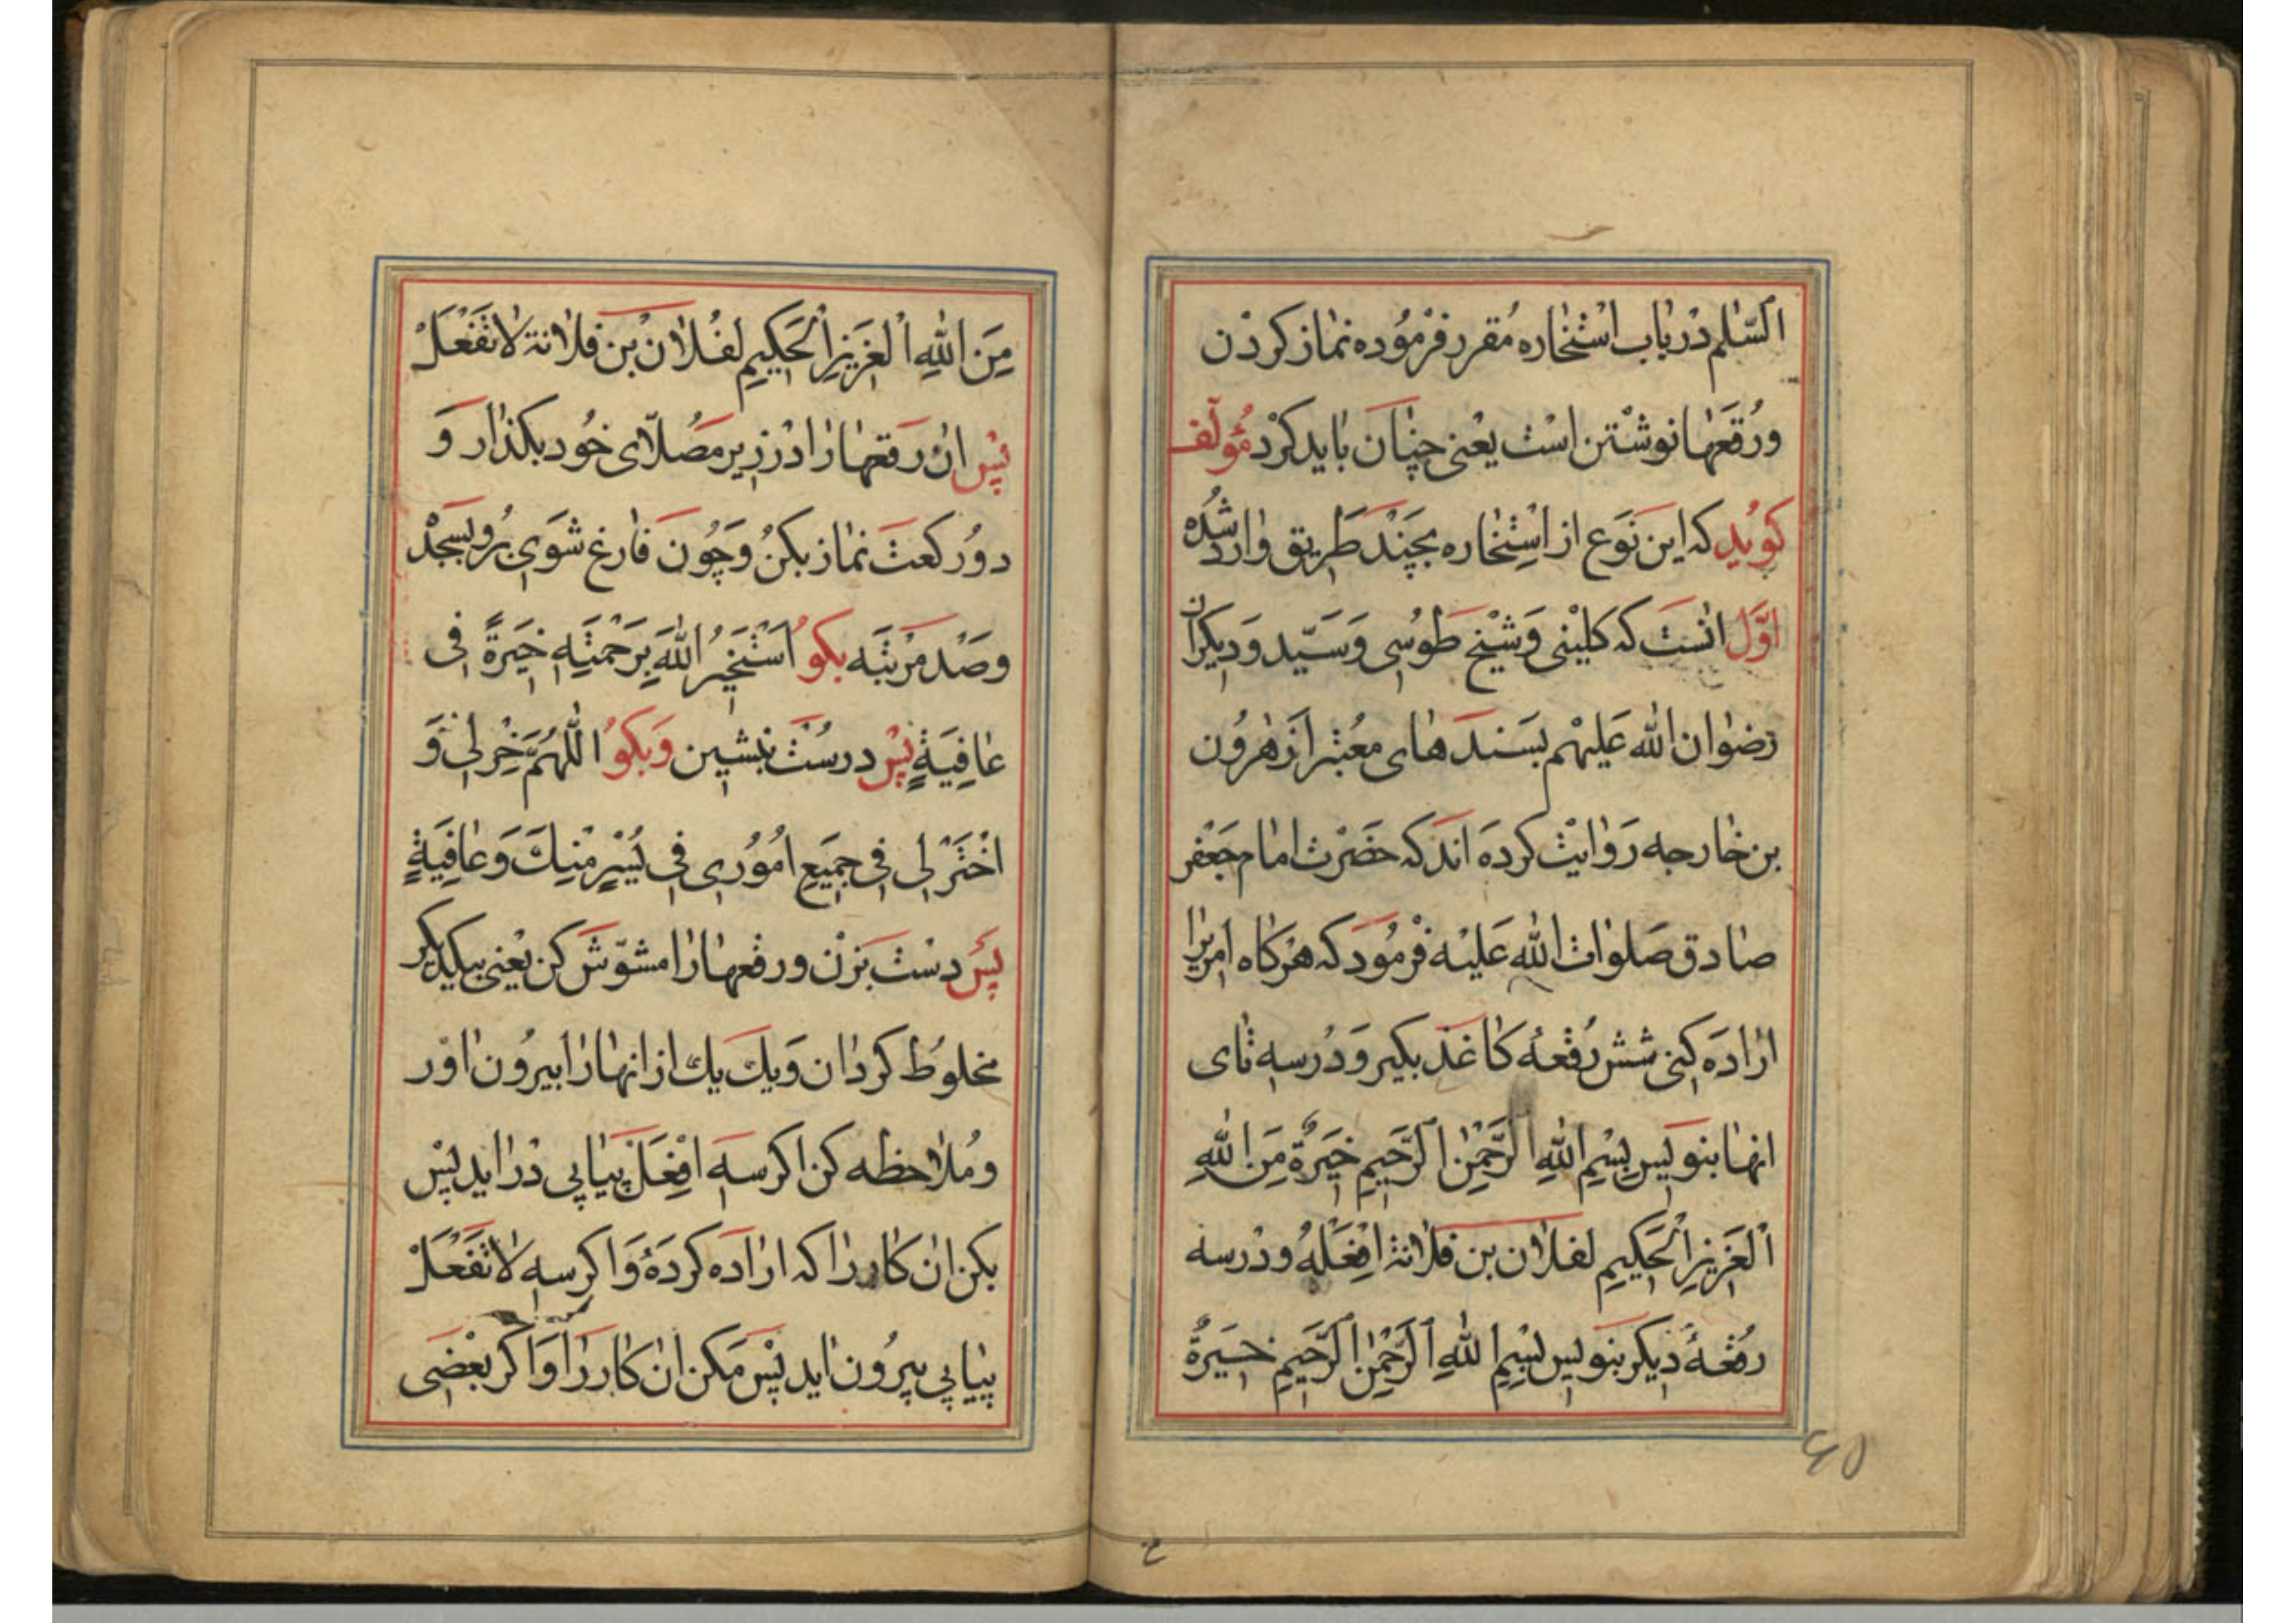 السّلم در باب استخاره مقرر فرموده نماز کردن
ورقعها نوشتن است یعنی چنان باید کرد مؤلف
کوید که این نوع از استخاره بچند طریق وارد شده
اوّل انست که کلینی و شیخ طوسی و سیّد و دیکران
رضوان الله علیهم بسندهای معتبر از هرون
بن خارجه روایت کرده اند که حضرت امام جعفر
صادق صلوات الله علیه فرمود که هرکاه امریرا
اراده کنی شش رقعهٔ کاغذ بکیر و در سه تای
انها بنویس بِسْمِ اللهِ الرَّحْمٰنِ الرَّحیمِ خِیَرَةٌ مِنَ اللهِ
الْعَزیزِ الْحَکیمِ لفلان بن فلانة اِفْعَلْهُ و در سه
رقعهٔ دیکر بنویس بِسْمِ اللهِ الرَّحْمٰنِ الرَّحیمِ خِیَرَةٌ
٤٥
مِنَ اللهِ الْعَزیزِ الْحَکیمِ لفلان بن فلانة لا تَفْعَلْ
پس ان رقعها را در زیر مصلّای خود بکذار و
دو رکعت نماز بکن و چون فارغ شوی برو بسجد
و صد مرتبه بکو اَسْتَخیرُ اللهَ بِرَحْمَتِهِ خِیَرَةً فی
عافِیَةٍ پس درست بنشین و بکو اللّهُمَّ خِرْ لی وَ
اخْتَرْ لی فی جَمیعِ اُمُوری فی یُسْرٍ مِنْكَ وَ عافِیَةٍ
پس دست بزن و رقعها را مشوّش کن یعنی بیکدیکر
مخلوط کردان و یك یك از انها را بیرون اور
و ملاحظه کن اکر سه اِفْعَلْ پیاپی در اید پس
بکن ان کار را که اراده کردهٔ و اکر سه لا تَفْعَلْ
پیاپی بیرون اید پس مکن ان کار را و اکر بعضی